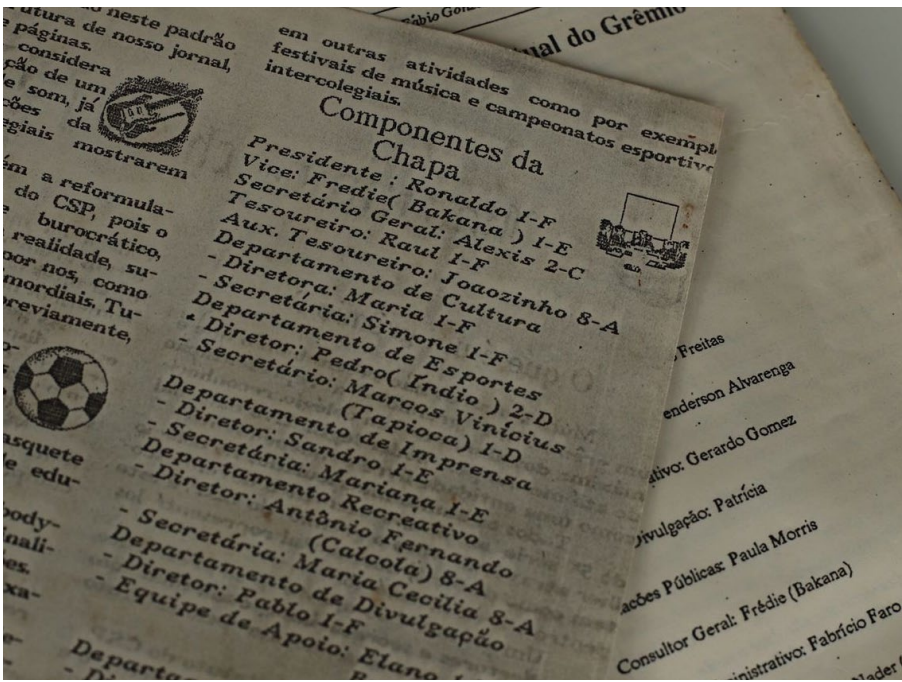 neste padrão
utura de nosso jornal,
páginas.
considera
ção de um
som, já
ções da
egiais mostrarem
a reformula-
do CSP, pois o
burocrático,
realidade, su-
por nos, como
mordiais. Tu-
previamente,
asquete
edu-
body-
nali-
em outras atividades como por exempl
festivais de música e campeonatos esportivo
intercolegiais.
Componentes da
Chapa
Presidente : Ronaldo 1-F
Vice: Fredie( Bakana ) 1-E
Secretário Geral: Alexis 2-C
Tesoureiro: Raul 1-F
Aux. Tesoureiro: Joaozinho 8-A
Departamento de Cultura
- Diretora: Maria 1-F
- Secretária: Simone 1-F
Departamento de Esportes
- Diretor: Pedro( Índio ) 2-D
- Secretário: Marcos Vinícius
(Tapioca) 1-D
Departamento de Imprensa
- Diretor: Sandro 1-E
- Secretária: Mariana 1-E
Departamento Recreativo
- Diretor: Antônio Fernando
(Calcola) 8-A
- Secretária: Maria Cecilia 8-A
Departamento de Divulgação
- Diretor: Pablo 1-F
- Equipe de Apoio: Elano
Departa
Fábio
ual do Grêmio
Freitas
enderson Alvarenga
ativo: Gerardo Gomez
Divulgação: Patrícia
ações Públicas: Paula Morris
Consultor Geral: Frédie (Bakana)
inistrativo: Fabrício Faro
Nader